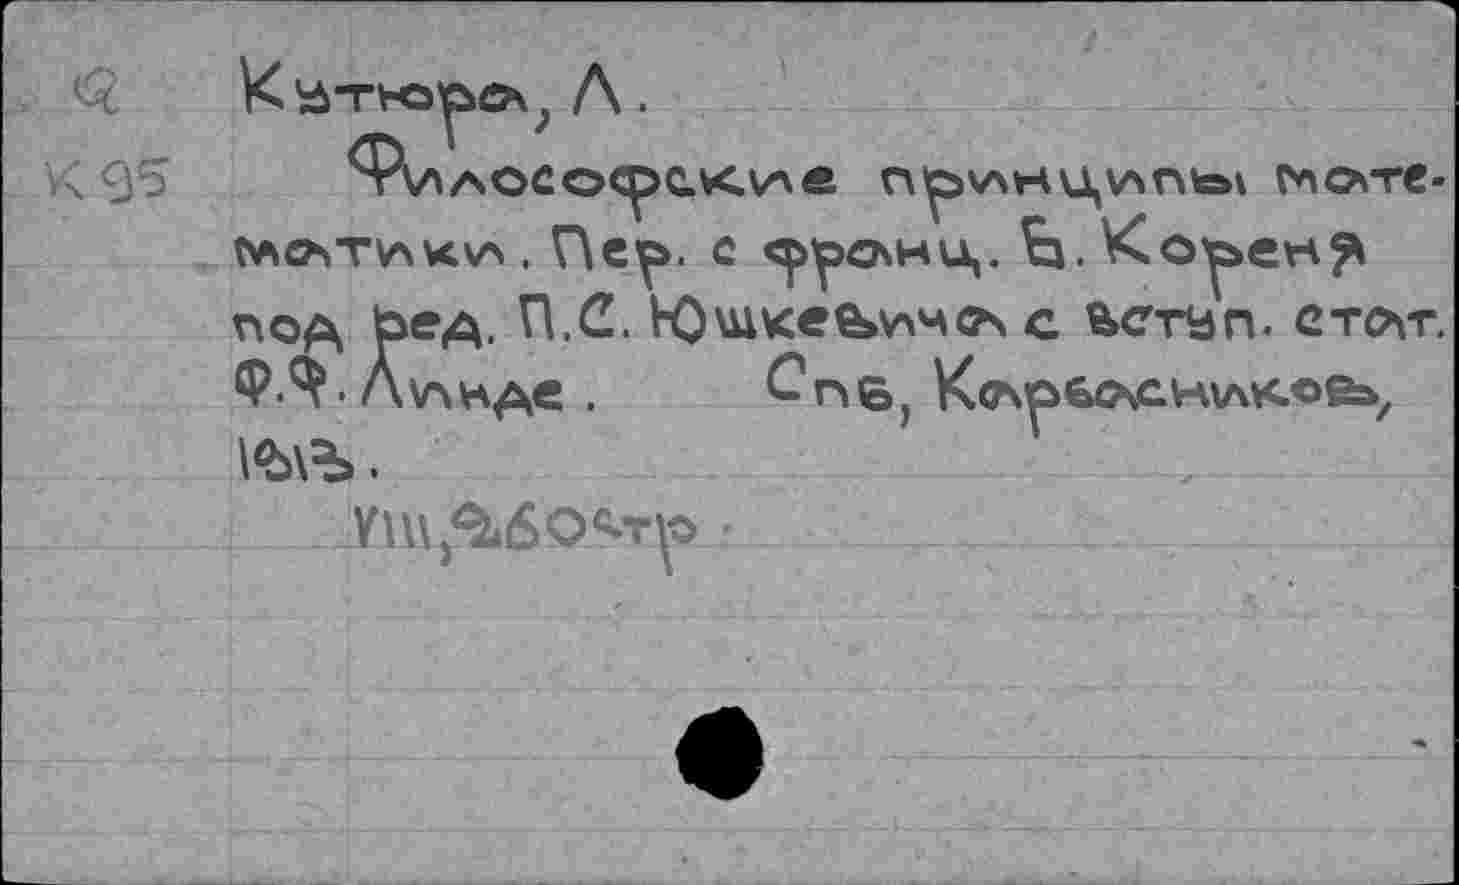 Q Кутюра, Л.
К95 Философские принципы мате-
матики. Пер. с франц. Б. Кореня
под ред. П.С. Юшкевича с вступ. стат.
Ф.Ф. Линде. Спб, Карбасников,
1913.
VIII, 260 стр.